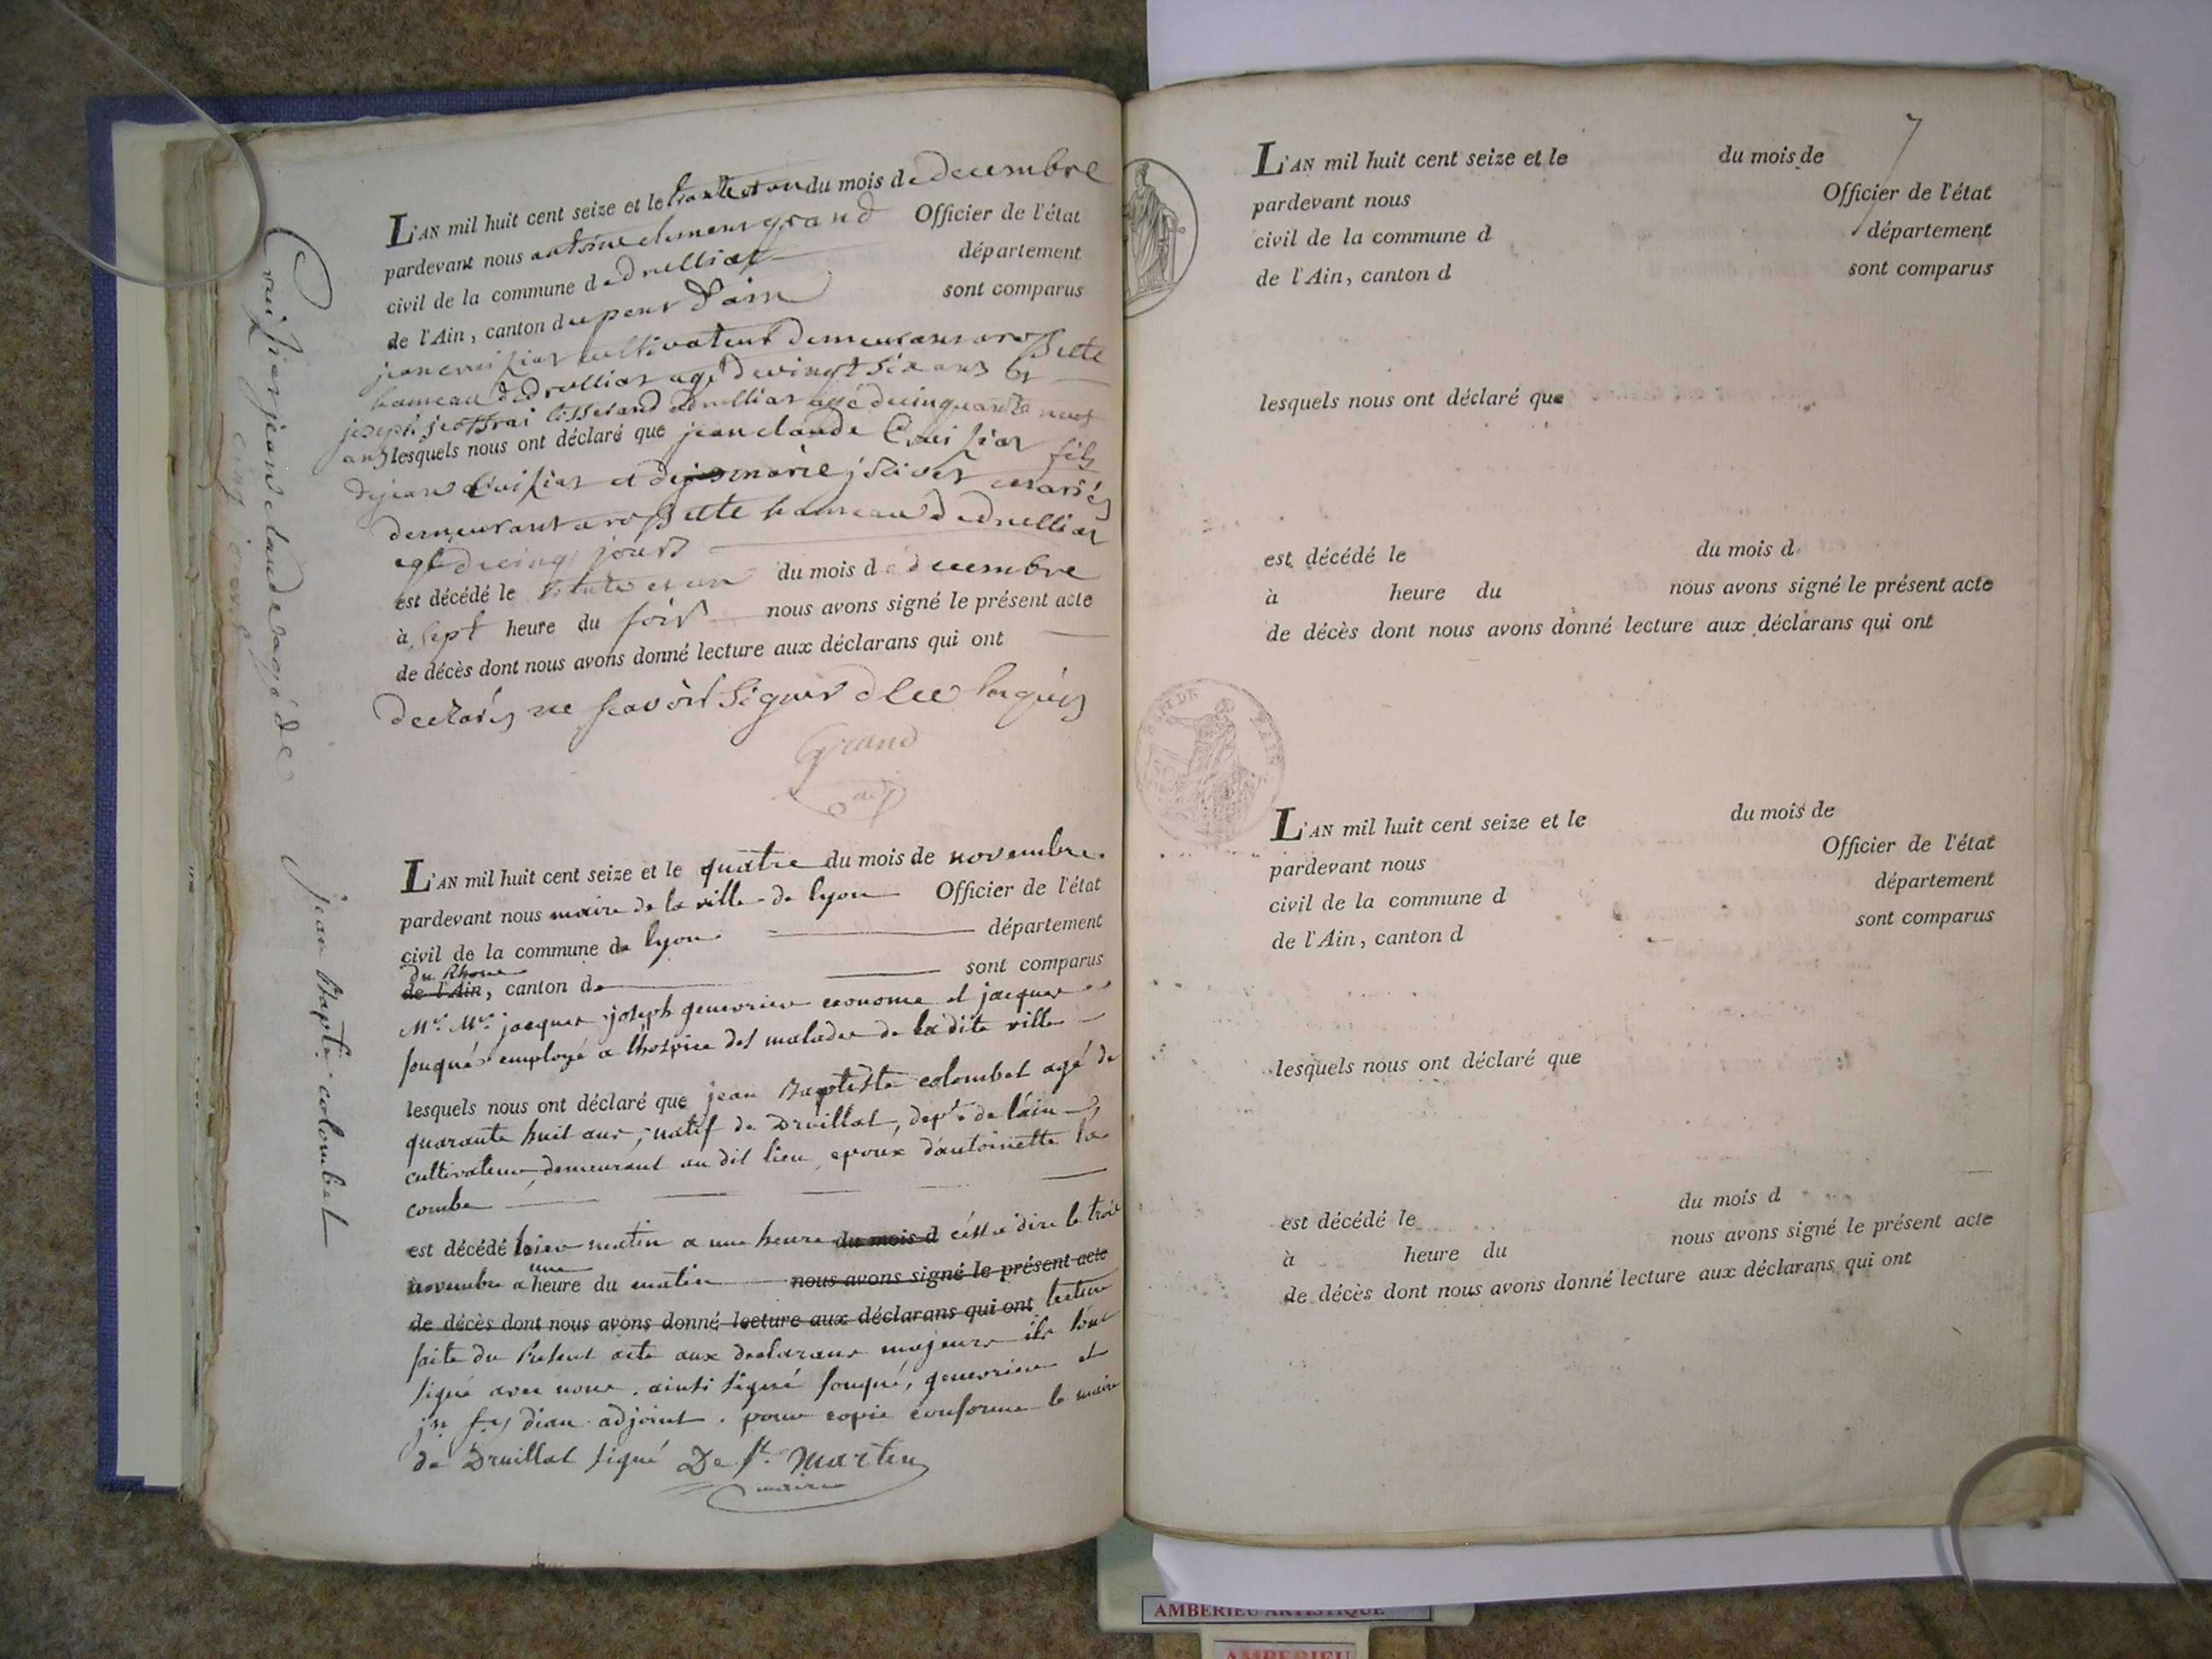 L'AN mil huit cent seize et le trante et un du mois de decembre
pardevant nous antoine clement grand Officier de l'état
civil de la commune de druilliat département
de l'Ain, canton du pont d'ain sont comparus
jean cultivateur demeurant a rossette
hameau de druilliat agé de vingt six ans et
joseph jeoffrai tisserand a druilliat agé de cinquante neuf
ans lesquels nous ont déclaré que jean claude fils
de jean et de marie mariés
demeurant a rossette hameau de druilliat
agé de cinq jours
est décédé le trente et un du mois de decembre
à sept heure du soir nous avons signé le présent acte
de décès dont nous avons donné lecture aux déclarans qui ont
declarés ne scavoir signer de ce
Grand
jean claude agé de
cinq jours
L'AN mil huit cent seize et le quatre du mois de novembre
pardevant nous maire de la ville de lyon Officier de l'état
civil de la commune de lyon département
du Rhone
de l'Ain, canton de sont comparus
Mr. Mr. jacques joseph genevrier econome et jacques
fouqué employé a l'hospice des malades de la dite ville
lesquels nous ont déclaré que jean Baptiste colombet agé de
quarante huit ans, natif de Druillat, dept. de l'ain
cultivateur demeurant au dit lieu, epoux d'antoinette la
combe
est décédé hier matin a une heure du mois d c'est a dire le trois
novembre a une heure du matin nous avons signé le présent acte
de décès dont nous avons donné lecture aux déclarans qui ont lecture
faite du present acte aux declarans majeurs ils l'ont
signé avec nous. ainsi signé fouqué, genevrier et
jn. fs. dian adjoint. pour copie conforme le maire
de Druillat signé De St. Martin
maire
jean Baptiste colombet
7
L'AN mil huit cent seize et le du mois de
pardevant nous Officier de l'état
civil de la commune d département
de l'Ain, canton d sont comparus
lesquels nous ont déclaré que
est décédé le du mois d
à heure du nous avons signé le présent acte
de décès dont nous avons donné lecture aux déclarans qui ont
L'AN mil huit cent seize et le du mois de
pardevant nous Officier de l'état
civil de la commune d département
de l'Ain, canton d sont comparus
lesquels nous ont déclaré que
est décédé le du mois d
à heure du nous avons signé le présent acte
de décès dont nous avons donné lecture aux déclarans qui ont
AMBERIEU ARTISTIQUE
AMBERIEU